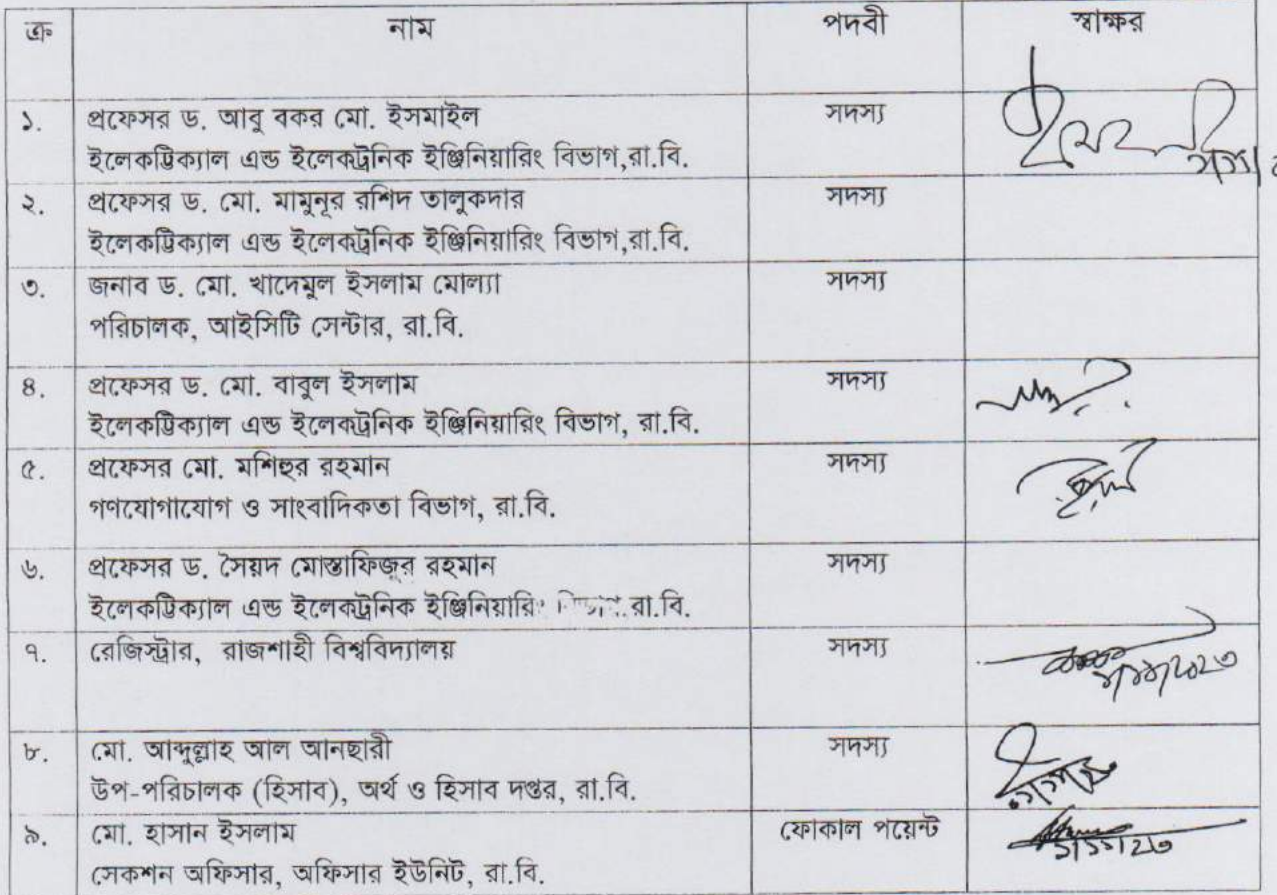 ক্র নাম পদবী স্বাক্ষর
১. প্রফেসর ড. আবু বকর মো. ইসমাইল সদস্য
ইলেকট্রিক্যাল এন্ড ইলেকট্রনিক ইঞ্জিনিয়ারিং বিভাগ,রা.বি.
২. প্রফেসর ড. মো. মামুনূর রশিদ তালুকদার সদস্য
ইলেকট্রিক্যাল এন্ড ইলেকট্রনিক ইঞ্জিনিয়ারিং বিভাগ,রা.বি.
৩. জনাব ড. মো. খাদেমুল ইসলাম মোল্যা সদস্য
পরিচালক, আইসিটি সেন্টার, রা.বি.
৪. প্রফেসর ড. মো. বাবুল ইসলাম সদস্য
ইলেকট্রিক্যাল এন্ড ইলেকট্রনিক ইঞ্জিনিয়ারিং বিভাগ, রা.বি.
৫. প্রফেসর মো. মশিহুর রহমান সদস্য
গণযোগাযোগ ও সাংবাদিকতা বিভাগ, রা.বি.
৬. প্রফেসর ড. সৈয়দ মোস্তাফিজুর রহমান সদস্য
ইলেকট্রিক্যাল এন্ড ইলেকট্রনিক ইঞ্জিনিয়ারিং রা.বি.
৭. রেজিস্ট্রার, রাজশাহী বিশ্ববিদ্যালয় সদস্য
৮. মো. আব্দুল্লাহ আল আনছারী সদস্য
উপ-পরিচালক (হিসাব), অর্থ ও হিসাব দপ্তর, রা.বি.
৯. মো. হাসান ইসলাম ফোকাল পয়েন্ট
সেকশন অফিসার, অফিসার ইউনিট, রা.বি.